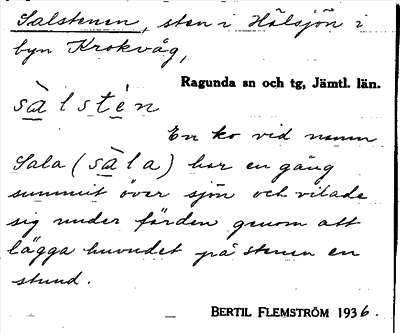 Salstenen, sten i Hälsjön i
byn Krokvåg,
Ragunda sn och tg, Jämtl. län.
sàlstén
En ko vid namn
Sala (sàla) har en gång
summit över sjön och vilade
sig under färden genom att
lägga huvudet på stenen en
stund.
BERTIL FLEMSTRÖM 1936.